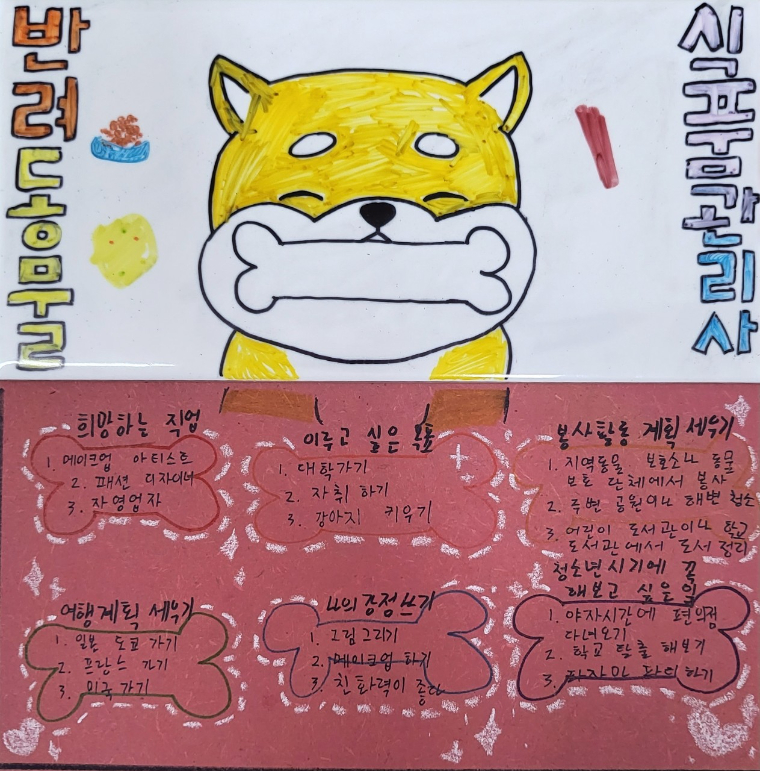 반려동물
식품관리사
희망하는 직업
1. 메이크업 아티스트
2. 패션 디자이너
3. 자영업자
이루고 싶은 목표
1. 대학가기
2. 자취 하기
3. 강아지 키우기
봉사활동 계획 세우기
1. 지역동물 보호소나 동물
보호 단체에서 봉사
2. 주변 공원이나 해변 청소
3. 어린이 도서관이나 학교
도서관에서 도서 정리
여행계획 세우기
1. 일본 도쿄 가기
2. 프랑스 가기
3. 미국 가기
나의 강점쓰기
1. 그림그리기
2. 메이크업 하기
3. 친화력이 좋다
청소년시기에 꼭
해보고 싶은일
1. 야자시간에 편의점
다녀오기
2. 학교 탈출 해보기
3. 파자마 파티 하기